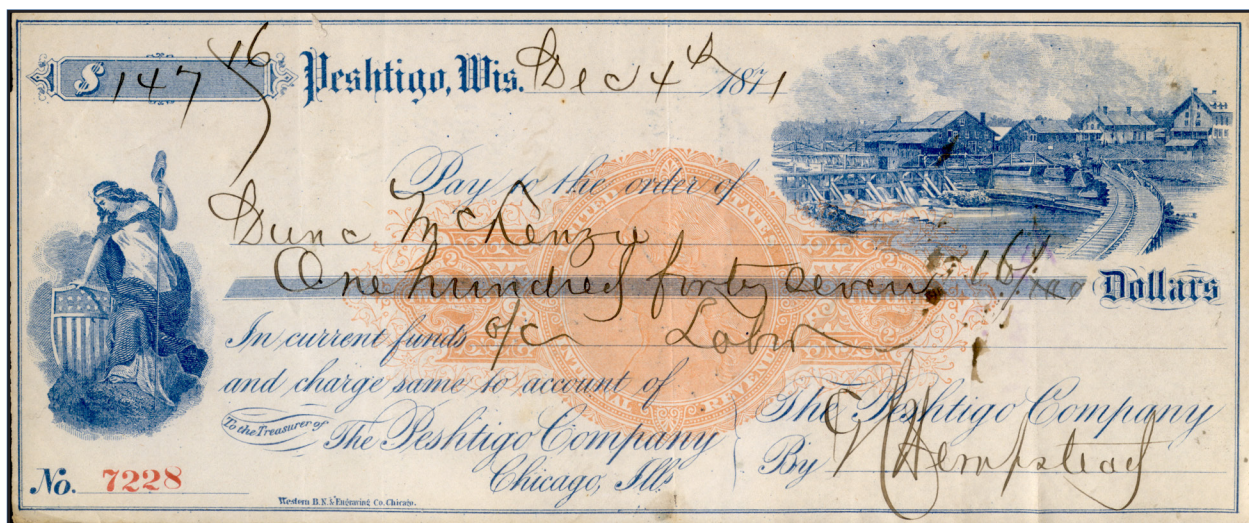 $ 147 16
Peshtigo, Wis. Dec 4th 1871
Pay to the order of
Dunc McKenzie
One hundred forty seven 16/100 Dollars
In current funds a/c Labor
and charge same to account of
To the Treasurer of The Peshtigo Company
Chicago, Ills.
The Peshtigo Company
By Hempstead
No. 7228
Western B.N. & Engraving Co. Chicago.
UNITED STATES
INTERNAL REVENUE